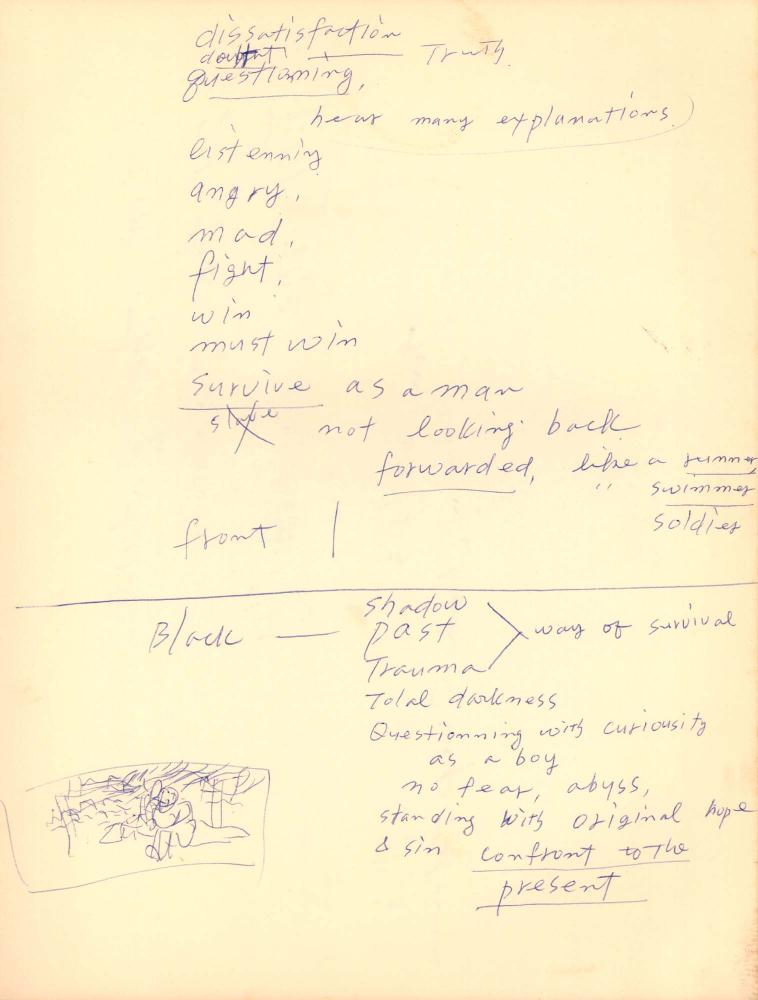 dissatisfaction
doubt — Truth.
questioning,
hear many explanations.)
listenning
angry,
mad,
fight,
win
must win
survive as a man
slave not looking back
forwarded, like a runner
" swimmer
soldier
front |
Black — shadow
past way of survival
Trauma
Total darkness
Questionning with curiousity
as a boy
no fear, abyss,
standing with original hope
& sin confront to the
present